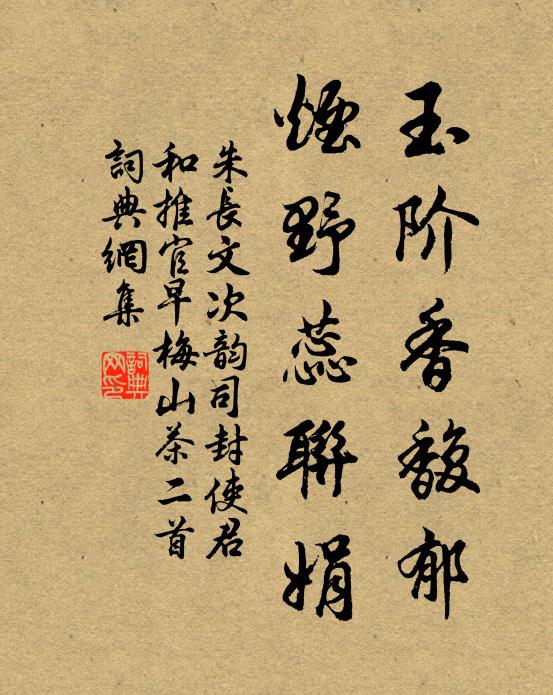 玉阶香馥郁
烟野蕊聯娟
朱長文次韵司封使君
和推官早梅山茶二首
詞典網集
詞典網印